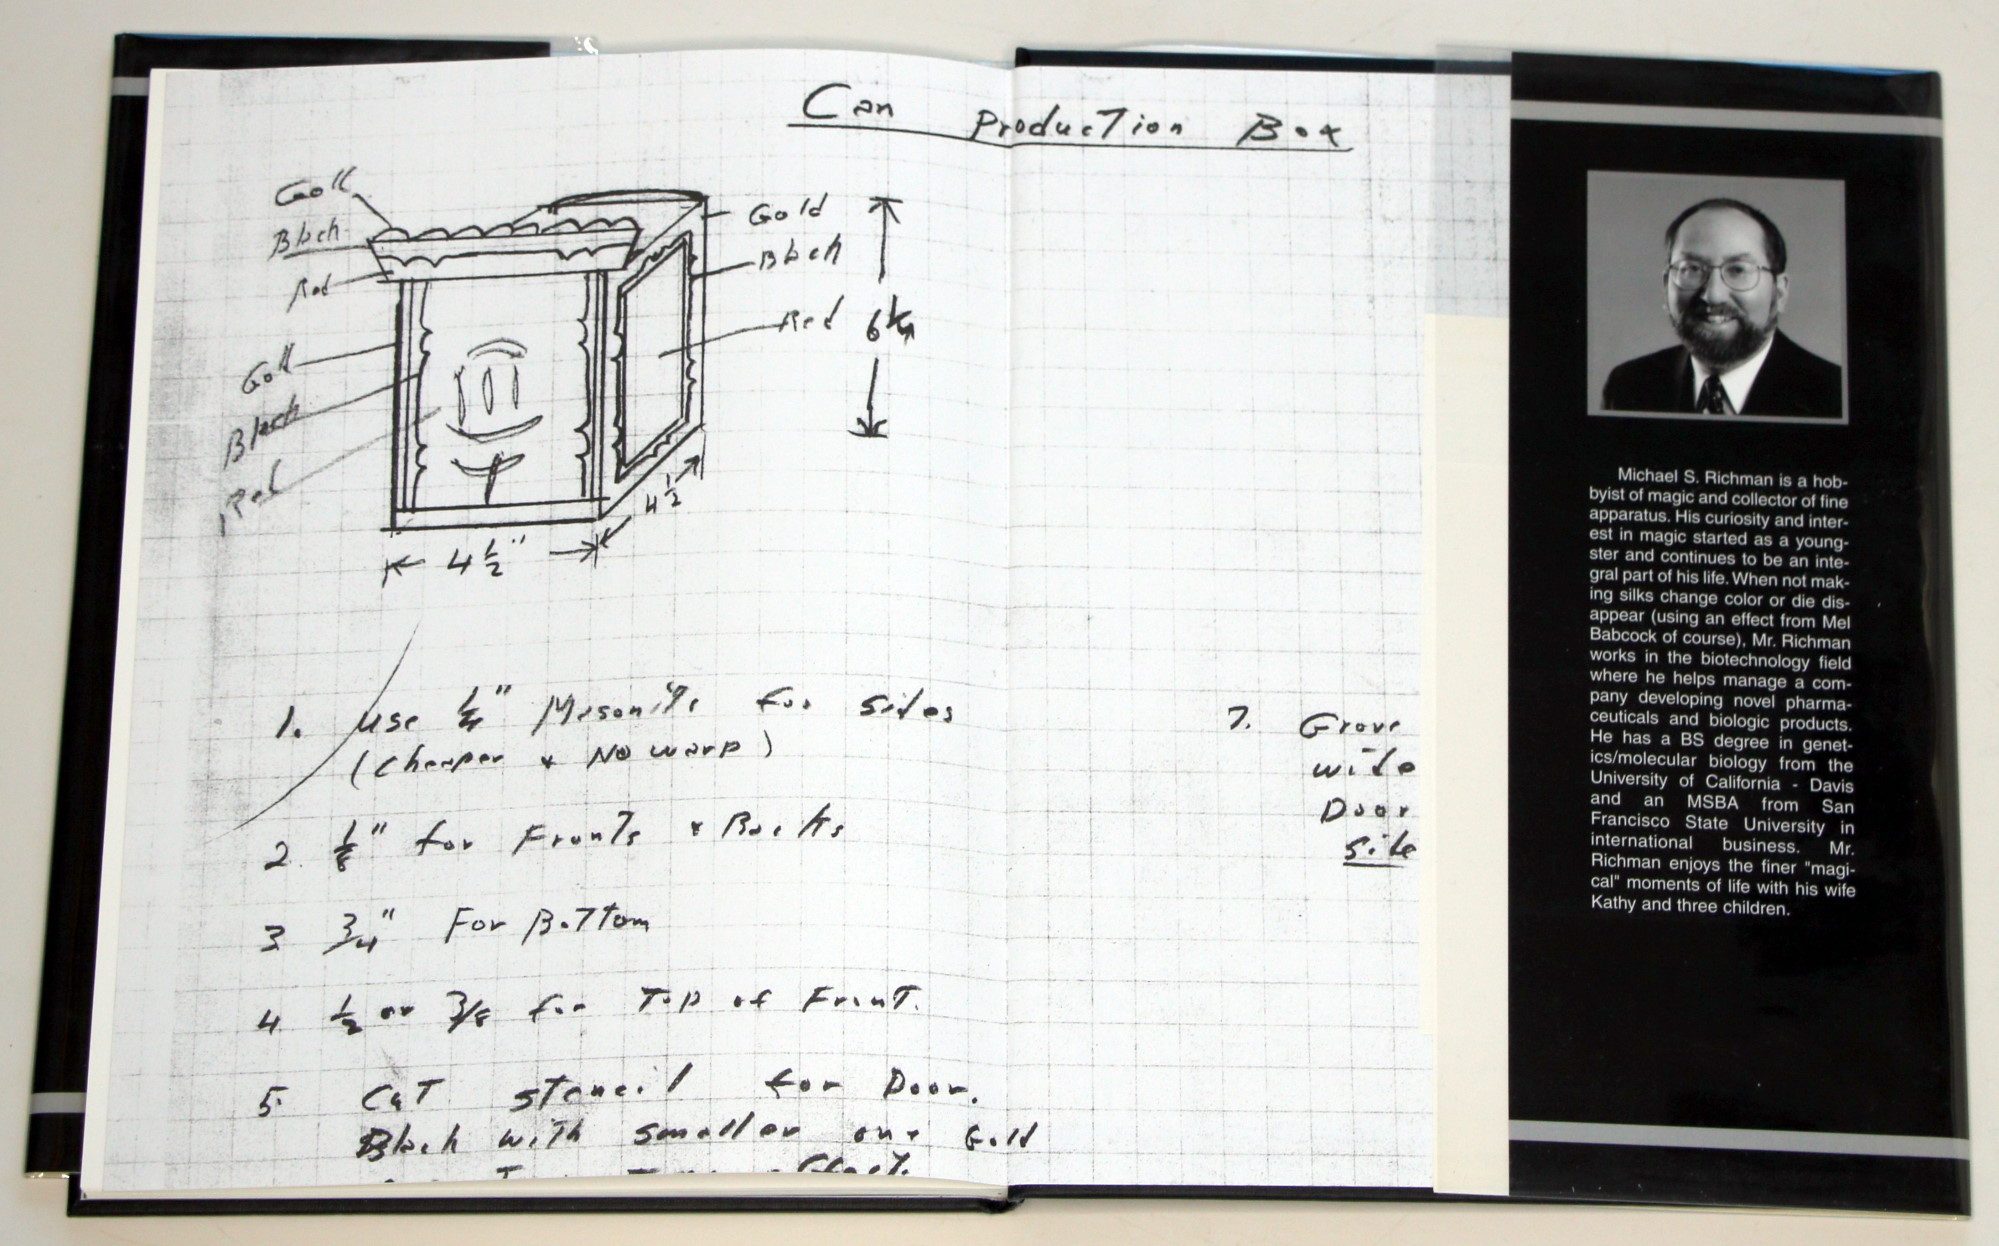 Can Production Box
Goll
Blach
Red
Gold
Blach
Red
Goll
Blach
Red
6
4 1/2
4 1/2"
1. Use 1/4" Masonite for sides
(cheaper + No warp)
2. 1/8" for Fronts + Backs
3 3/4" For Bottom
4. 1/2 or 3/8 for Top of Front.
5. Cut stencil for Door.
Blach with smaller one Gold
7. Grove
wide
Door
side
Michael S. Richman is a hob-
byist of magic and collector of fine
apparatus. His curiosity and inter-
est in magic started as a young-
ster and continues to be an inte-
gral part of his life. When not mak-
ing silks change color or die dis-
appear (using an effect from Mel
Babcock of course), Mr. Richman
works in the biotechnology field
where he helps manage a com-
pany developing novel pharma-
ceuticals and biologic products.
He has a BS degree in genet-
ics/molecular biology from the
University of California - Davis
and an MSBA from San
Francisco State University in
international business. Mr.
Richman enjoys the finer "magi-
cal" moments of life with his wife
Kathy and three children.